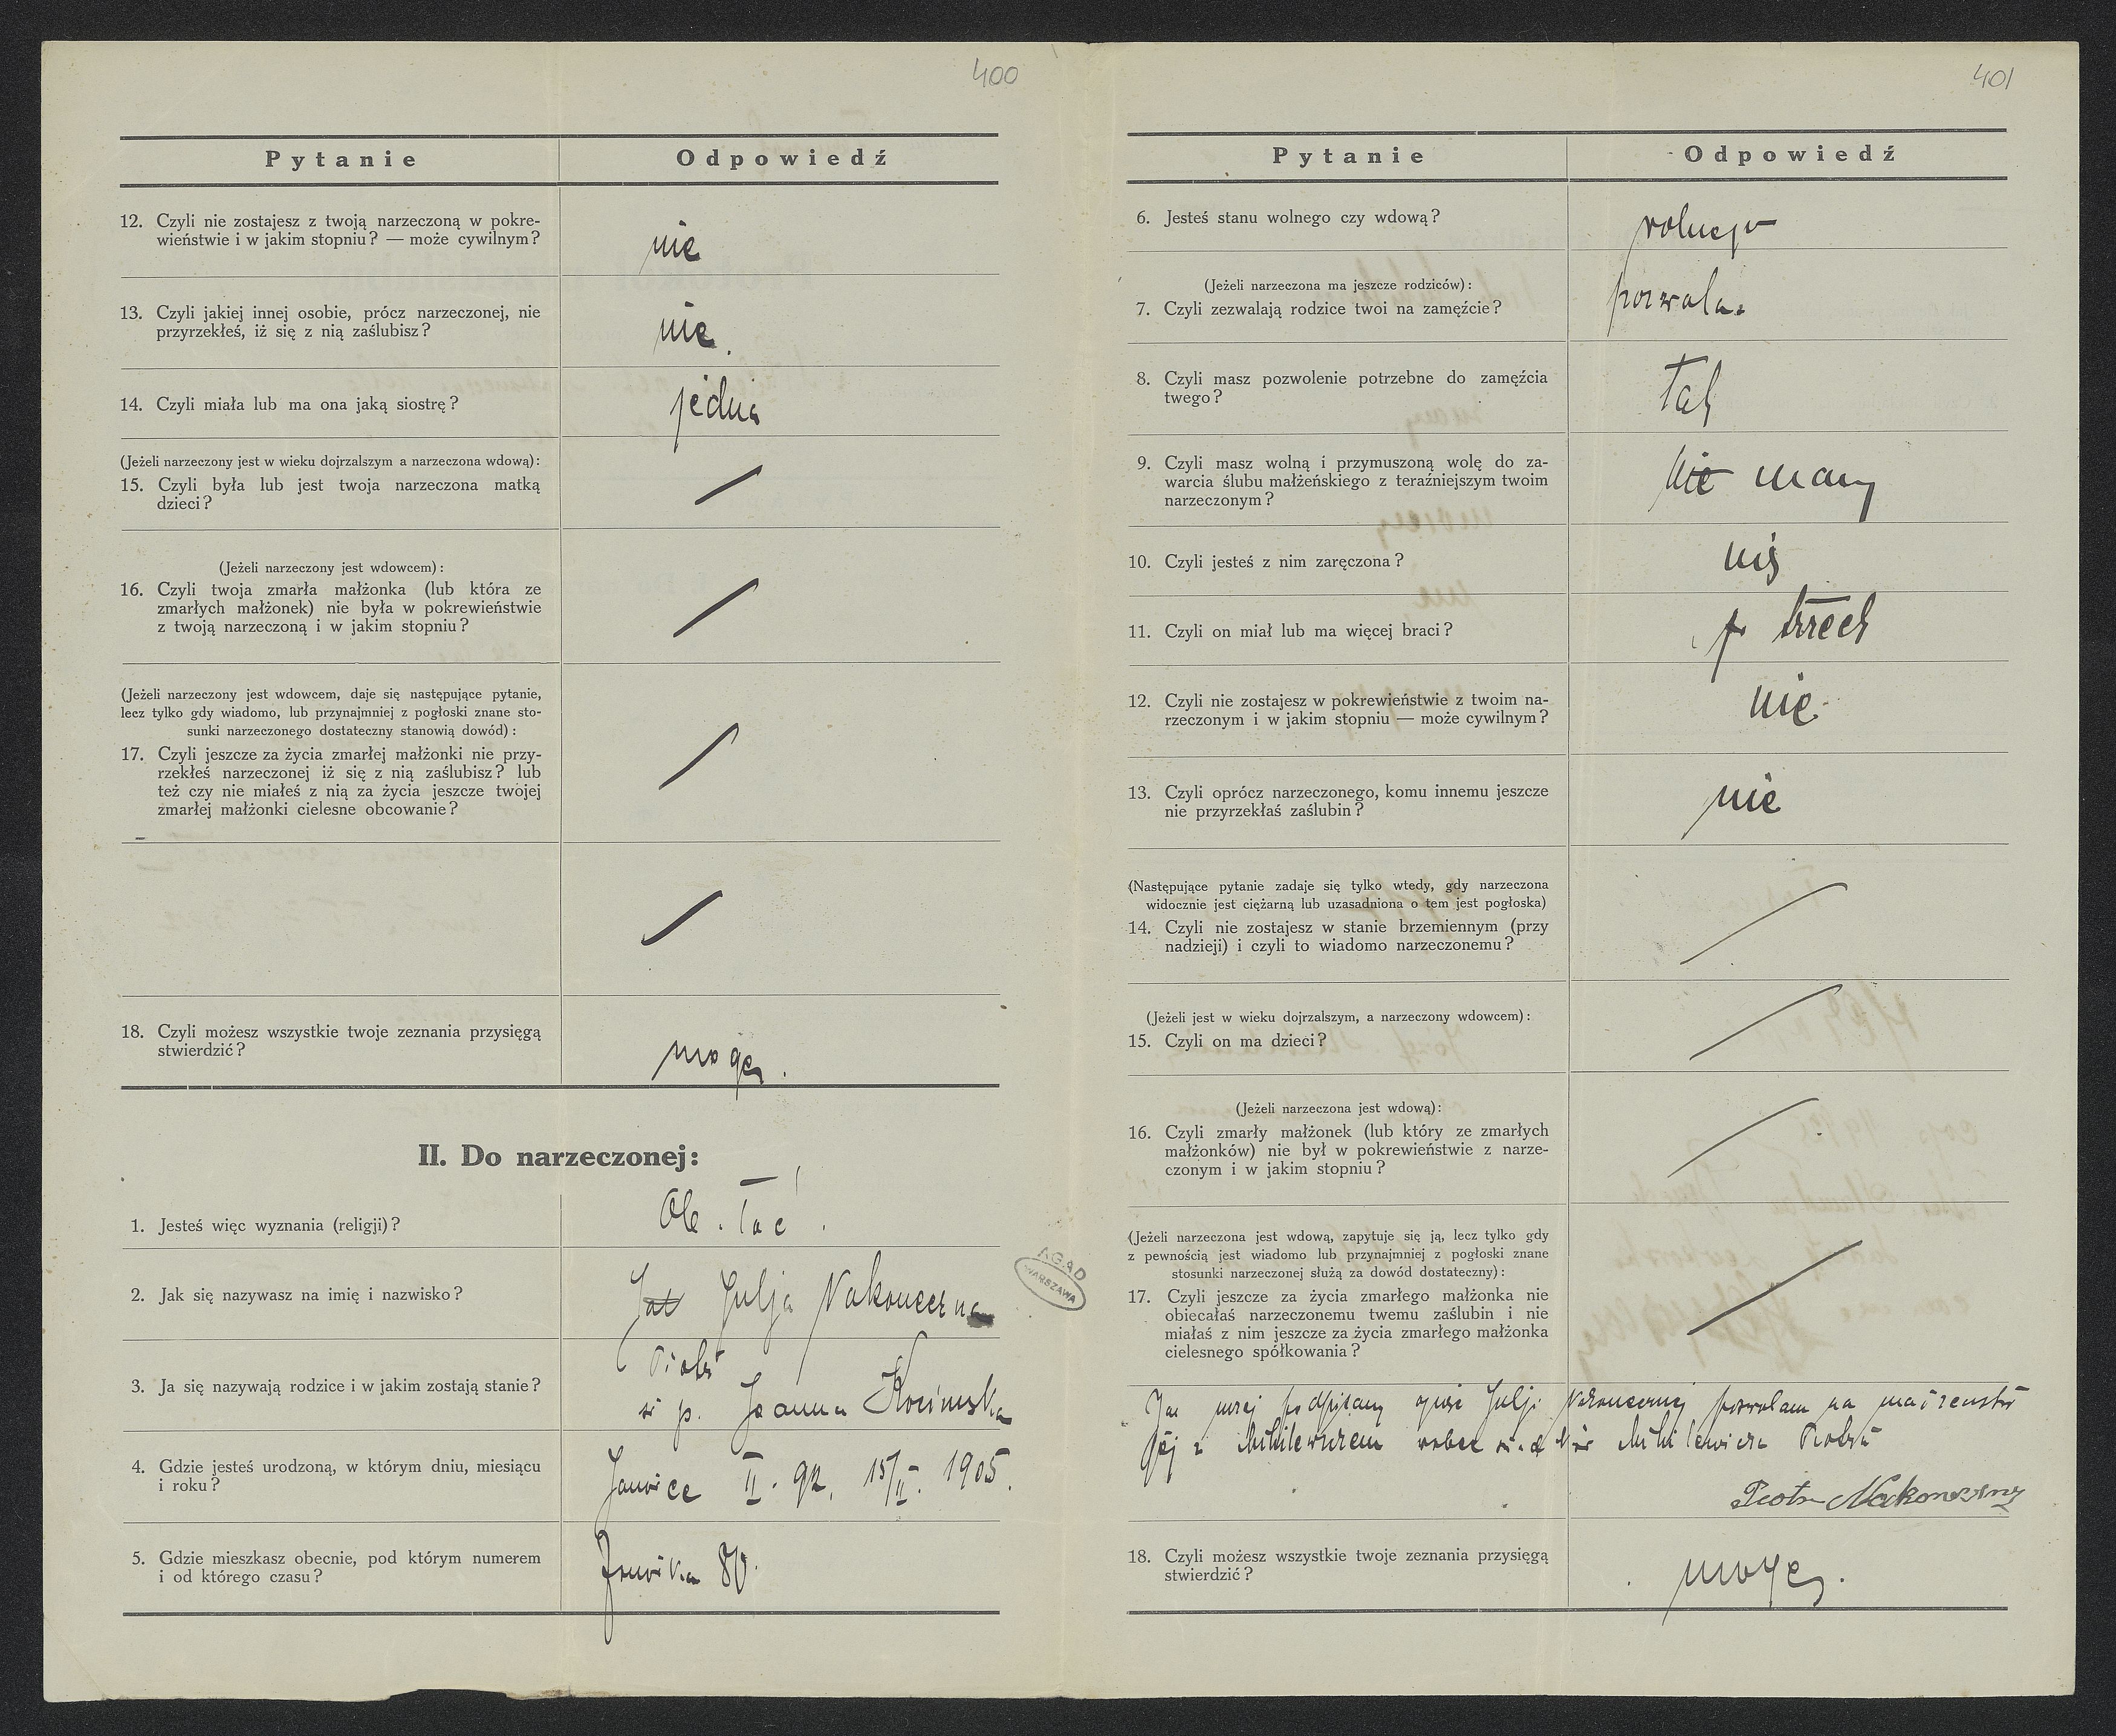 400
Pytanie Odpowiedź
12. Czyli nie zostajesz z twoją narzeczoną w pokre-
wieństwie i w jakim stopniu? — może cywilnym?
nie
13. Czyli jakiej innej osobie, prócz narzeczonej, nie
przyrzekłeś, iż się z nią zaślubisz?
nie.
14. Czyli miała lub ma ona jaką siostrę?
jedna
(Jeżeli narzeczony jest w wieku dojrzalszym a narzeczona wdową):
15. Czyli była lub jest twoja narzeczona matką
dzieci?
(Jeżeli narzeczony jest wdowcem):
16. Czyli twoja zmarła małżonka (lub która ze
zmarłych małżonek) nie była w pokrewieństwie
z twoją narzeczoną i w jakim stopniu?
(Jeżeli narzeczony jest wdowcem, daje się następujące pytanie,
lecz tylko gdy wiadomo, lub przynajmniej z pogłoski znane sto-
sunki narzeczonego dostateczny stanowią dowód):
17. Czyli jeszcze za życia zmarłej małżonki nie przy-
rzekłeś narzeczonej iż się z nią zaślubisz? lub
też czy nie miałeś z nią za życia jeszcze twojej
zmarłej małżonki cielesne obcowanie?
18. Czyli możesz wszystkie twoje zeznania przysięgą
stwierdzić?
mogę.
II. Do narzeczonej:
1. Jesteś więc wyznania (religji)?
2. Jak się nazywasz na imię i nazwisko?
Julja Nakoneczna
3. Ja się nazywają rodzice i w jakim zostają stanie?
Piotr
i p. Joanna
4. Gdzie jesteś urodzoną, w którym dniu, miesiącu
i roku?
15/II. 1905.
5. Gdzie mieszkasz obecnie, pod którym numerem
i od którego czasu?
80.
AGAD
WARSZAWA
401
Pytanie Odpowiedź
6. Jesteś stanu wolnego czy wdową?
wolnego
(Jeżeli narzeczona ma jeszcze rodziców):
7. Czyli zezwalają rodzice twoi na zamęźcie?
pozwala.
8. Czyli masz pozwolenie potrzebne do zamęźcia
twego?
tak
9. Czyli masz wolną i przymuszoną wolę do za-
warcia ślubu małżeńskiego z teraźniejszym twoim
narzeczonym?
nie mam
10. Czyli jesteś z nim zaręczona?
nie
11. Czyli on miał lub ma więcej braci?
trzech
12. Czyli nie zostajesz w pokrewieństwie z twoim na-
rzeczonym i w jakim stopniu — może cywilnym?
nie.
13. Czyli oprócz narzeczonego, komu innemu jeszcze
nie przyrzekłaś zaślubin?
nie
(Następujące pytanie zadaje się tylko wtedy, gdy narzeczona
widocznie jest ciężarną lub uzasadniona o tem jest pogłoska)
14. Czyli nie zostajesz w stanie brzemiennym (przy
nadzieji) i czyli to wiadomo narzeczonemu?
(Jeżeli jest w wieku dojrzalszym, a narzeczony wdowcem):
15. Czyli on ma dzieci?
(Jeżeli narzeczona jest wdową):
16. Czyli zmarły małżonek (lub który ze zmarłych
małżonków) nie był w pokrewieństwie z narze-
czonym i w jakim stopniu?
(Jeżeli narzeczona jest wdową, zapytuje się ją, lecz tylko gdy
z pewnością jest wiadomo lub przynajmniej z pogłoski znane
stosunki narzeczonej służą za dowód dostateczny):
17. Czyli jeszcze za życia zmarłego małżonka nie
obiecałaś narzeczonemu twemu zaślubin i nie
miałaś z nim jeszcze za życia zmarłego małżonka
cielesnego spółkowania?
Ja niżej podpisany ojciec Julji Nakonecznej pozwalam na małżeństwo
jej z Mihilewiczem wobec Mihilewicza Piotra
Piotr Nakoneczny
18. Czyli możesz wszystkie twoje zeznania przysięgą
stwierdzić?
mogę.